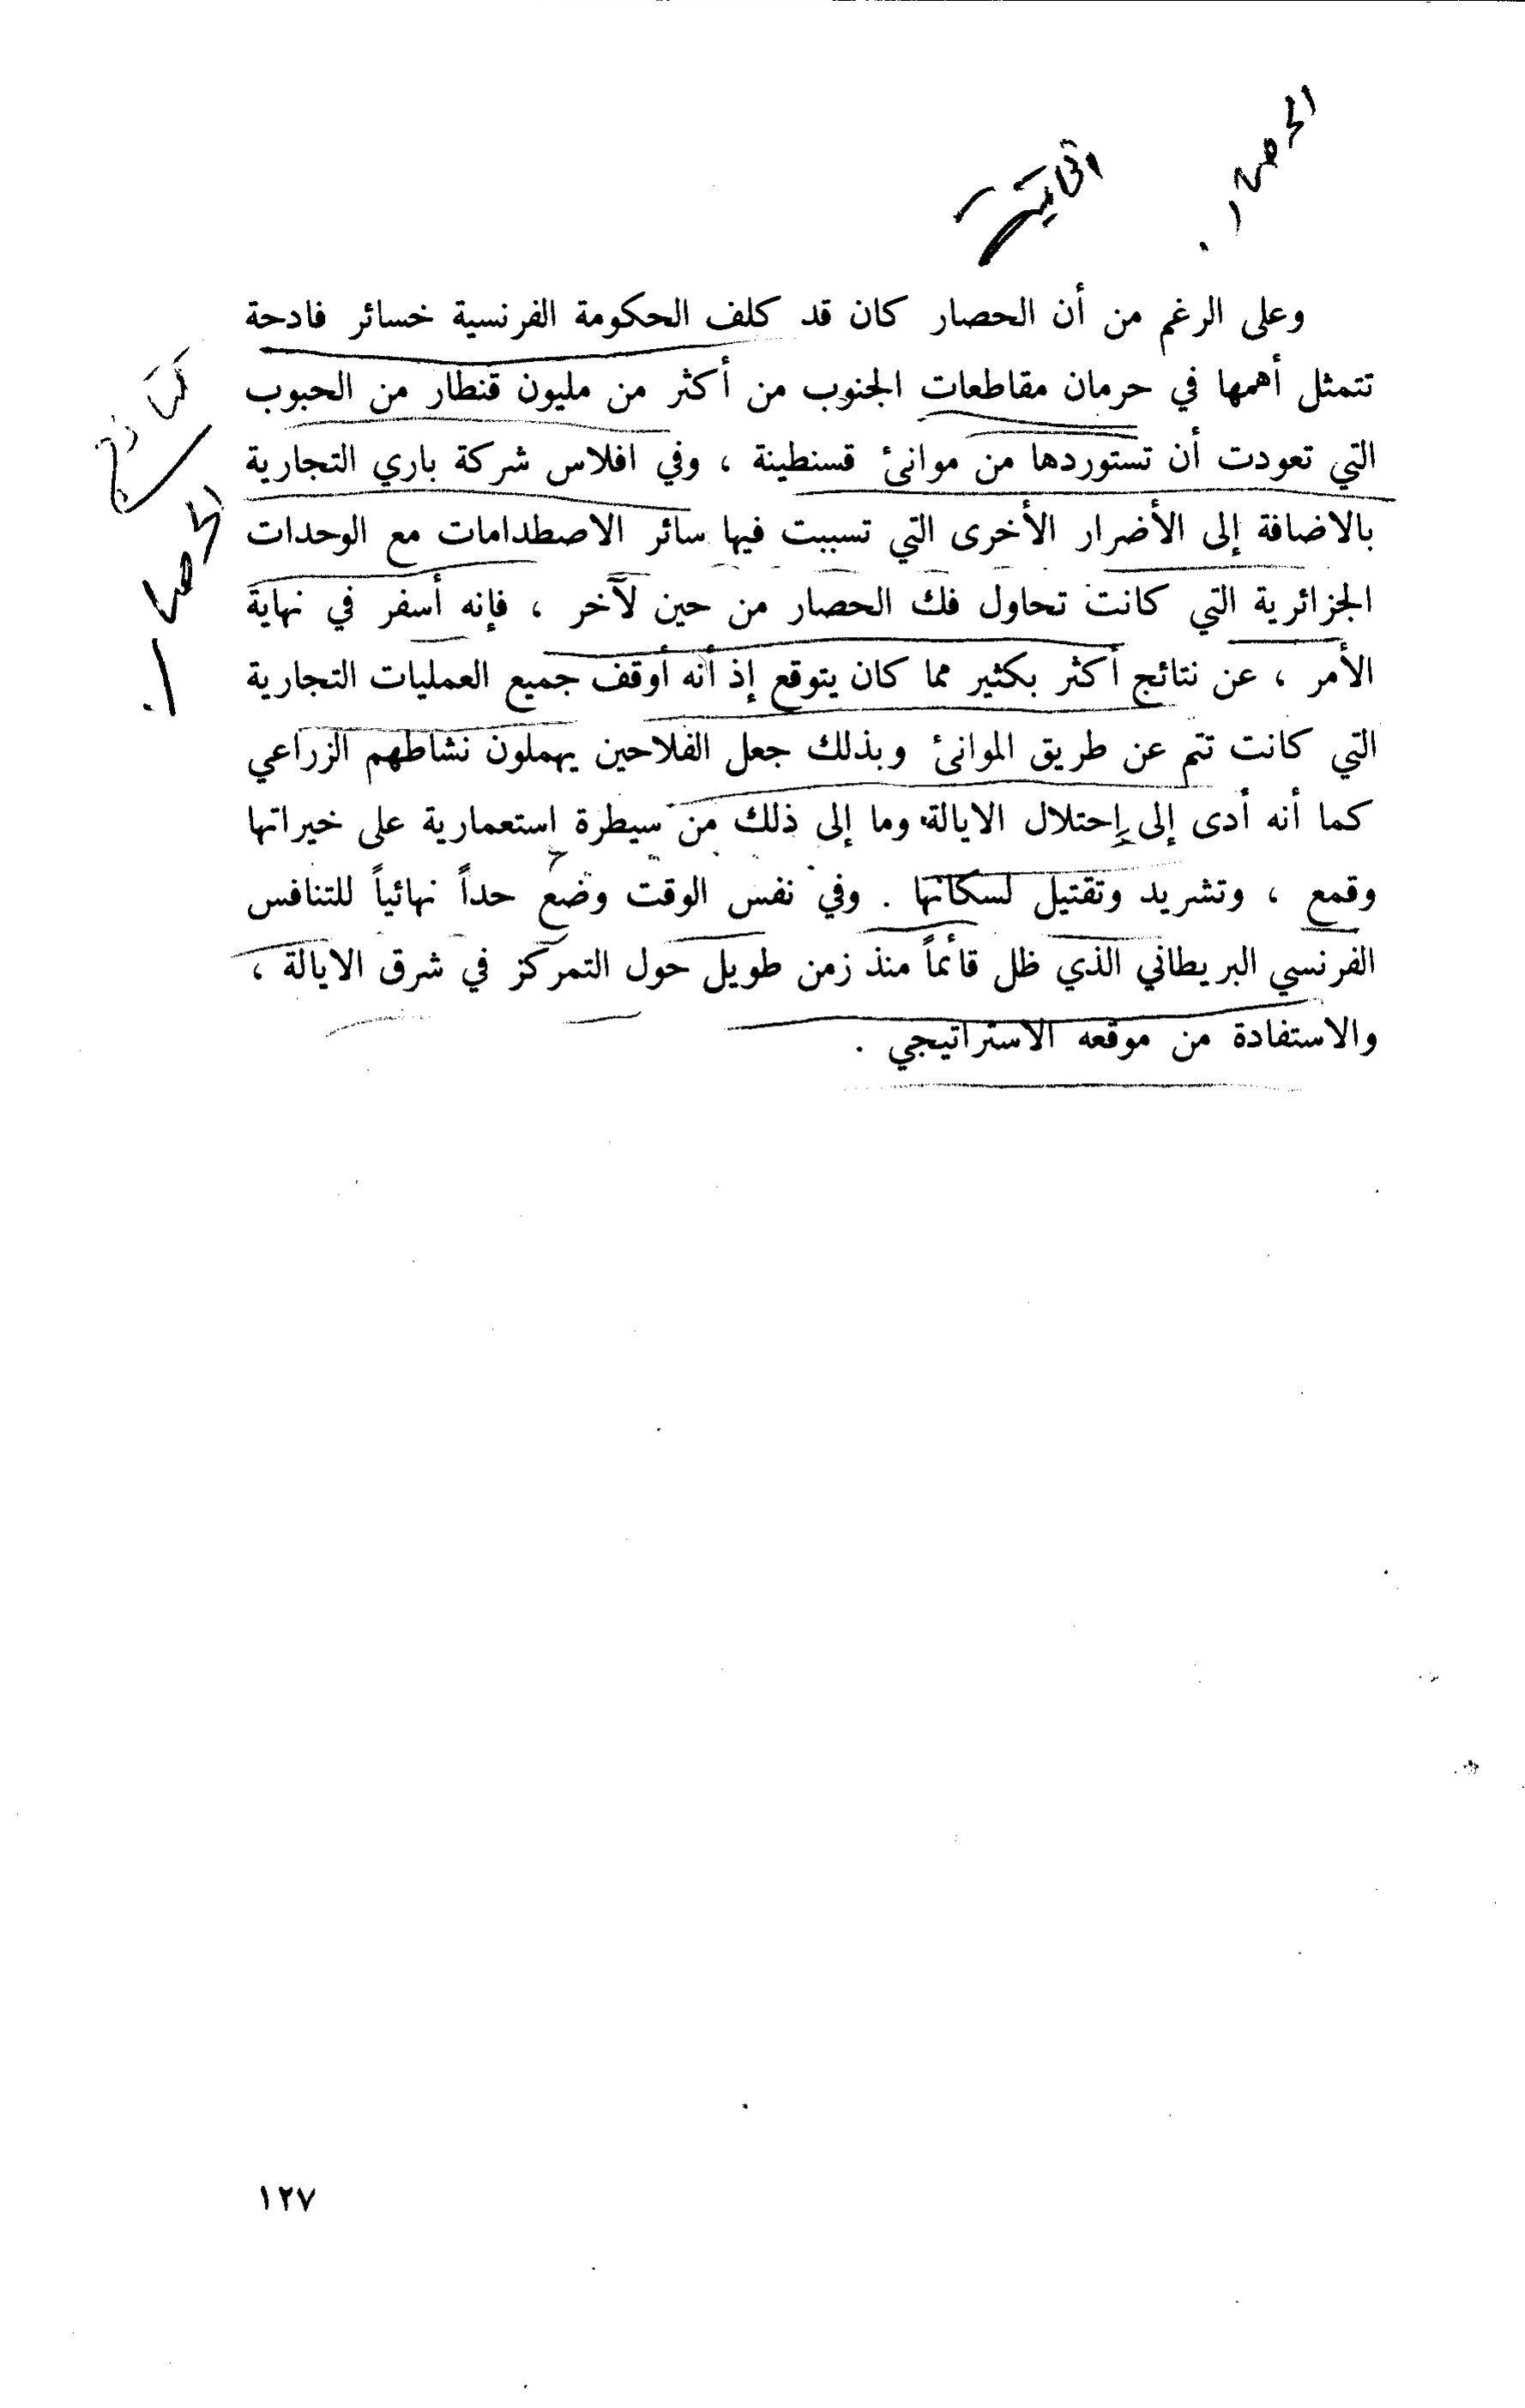 وعلى الرغم من أن الحصار كان قد كلف الحكومة الفرنسية خسائر فادحة
تتمثل أهمها في حرمان مقاطعات الجنوب من أكثر من مليون قنطار من الحبوب
التي تعودت أن تستوردها من موانئ قسنطينة ، وفي افلاس شركة باري التجارية
بالاضافة إلى الأضرار الأخرى التي تسببت فيها سائر الاصطدامات مع الوحدات
الجزائرية التي كانت تحاول فك الحصار من حين لآخر ، فإنه أسفر في نهاية
الأمر ، عن نتائج أكثر بكثير مما كان يتوقع إذ أنه أوقف جميع العمليات التجارية
التي كانت تتم عن طريق الموانئ وبذلك جعل الفلاحين يهملون نشاطهم الزراعي
كما أنه أدى إلى إحتلال الايالة وما إلى ذلك من سيطرة استعمارية على خيراتها
وقمع ، وتشريد وتقتيل لسكانها . وفي نفس الوقت وضع حداً نهائياً للتنافس
الفرنسي البريطاني الذي ظل قائماً منذ زمن طويل حول التمركز في شرق الايالة ،
والاستفادة من موقعه الاستراتيجي .
١٢٧